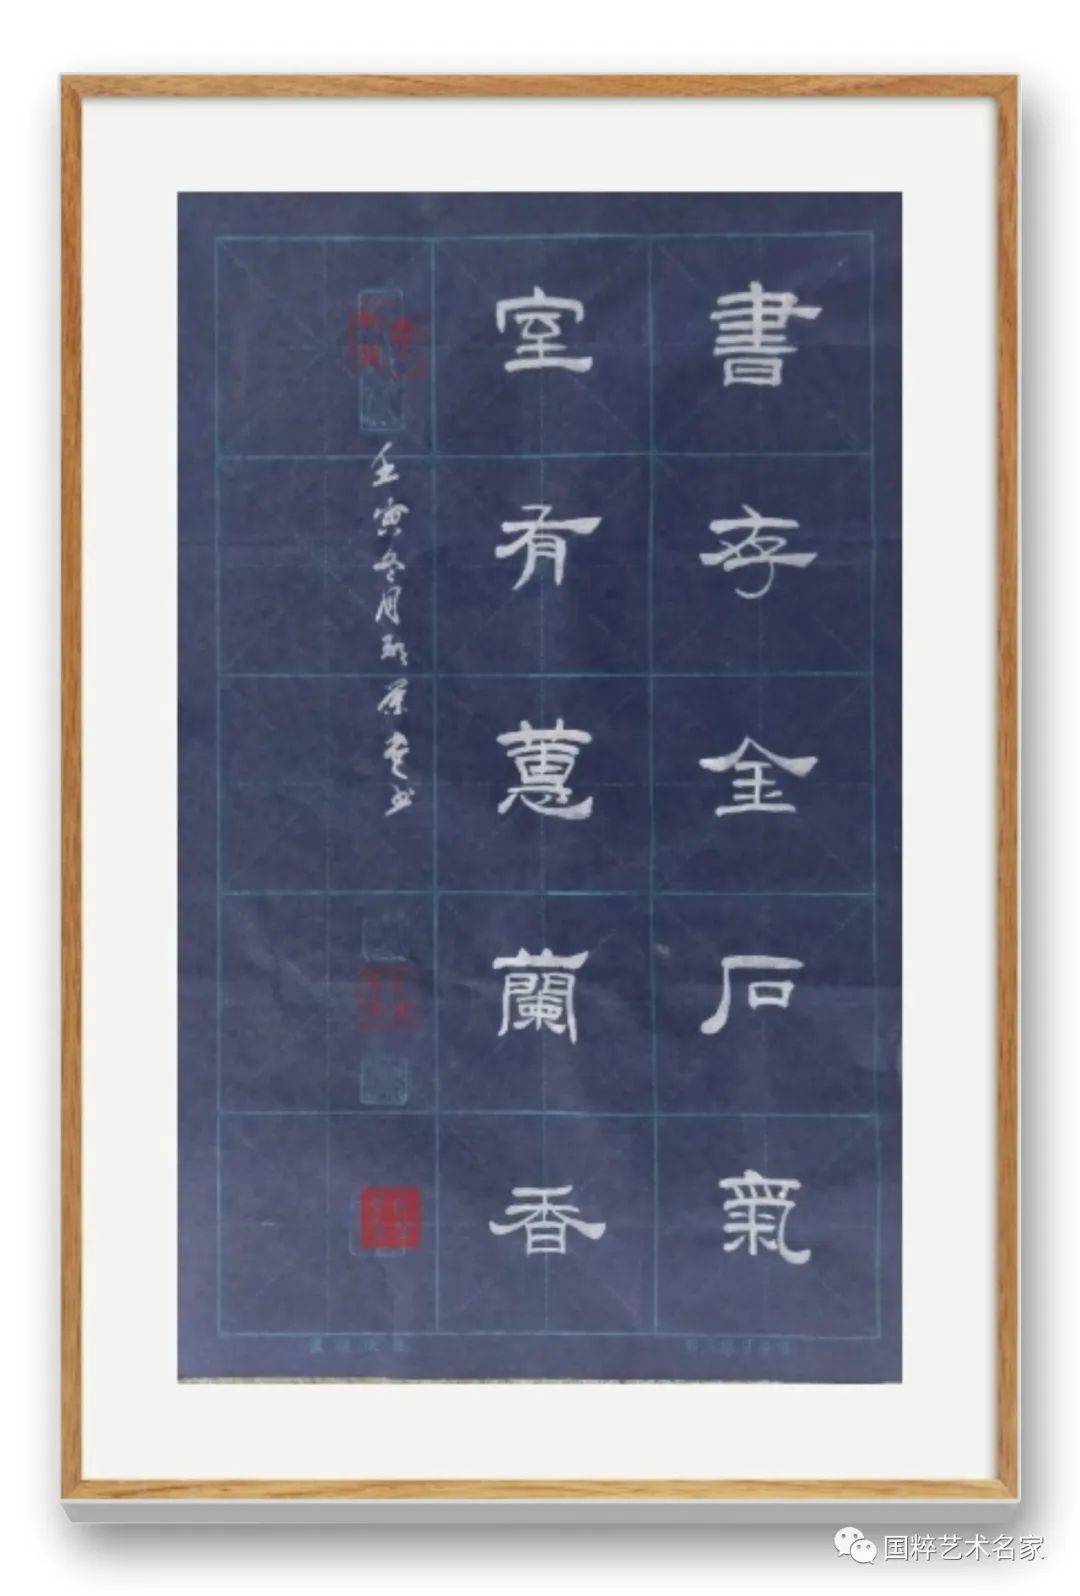 書存金石氣
室有蕙蘭香
壬寅冬月
国粹艺术名家